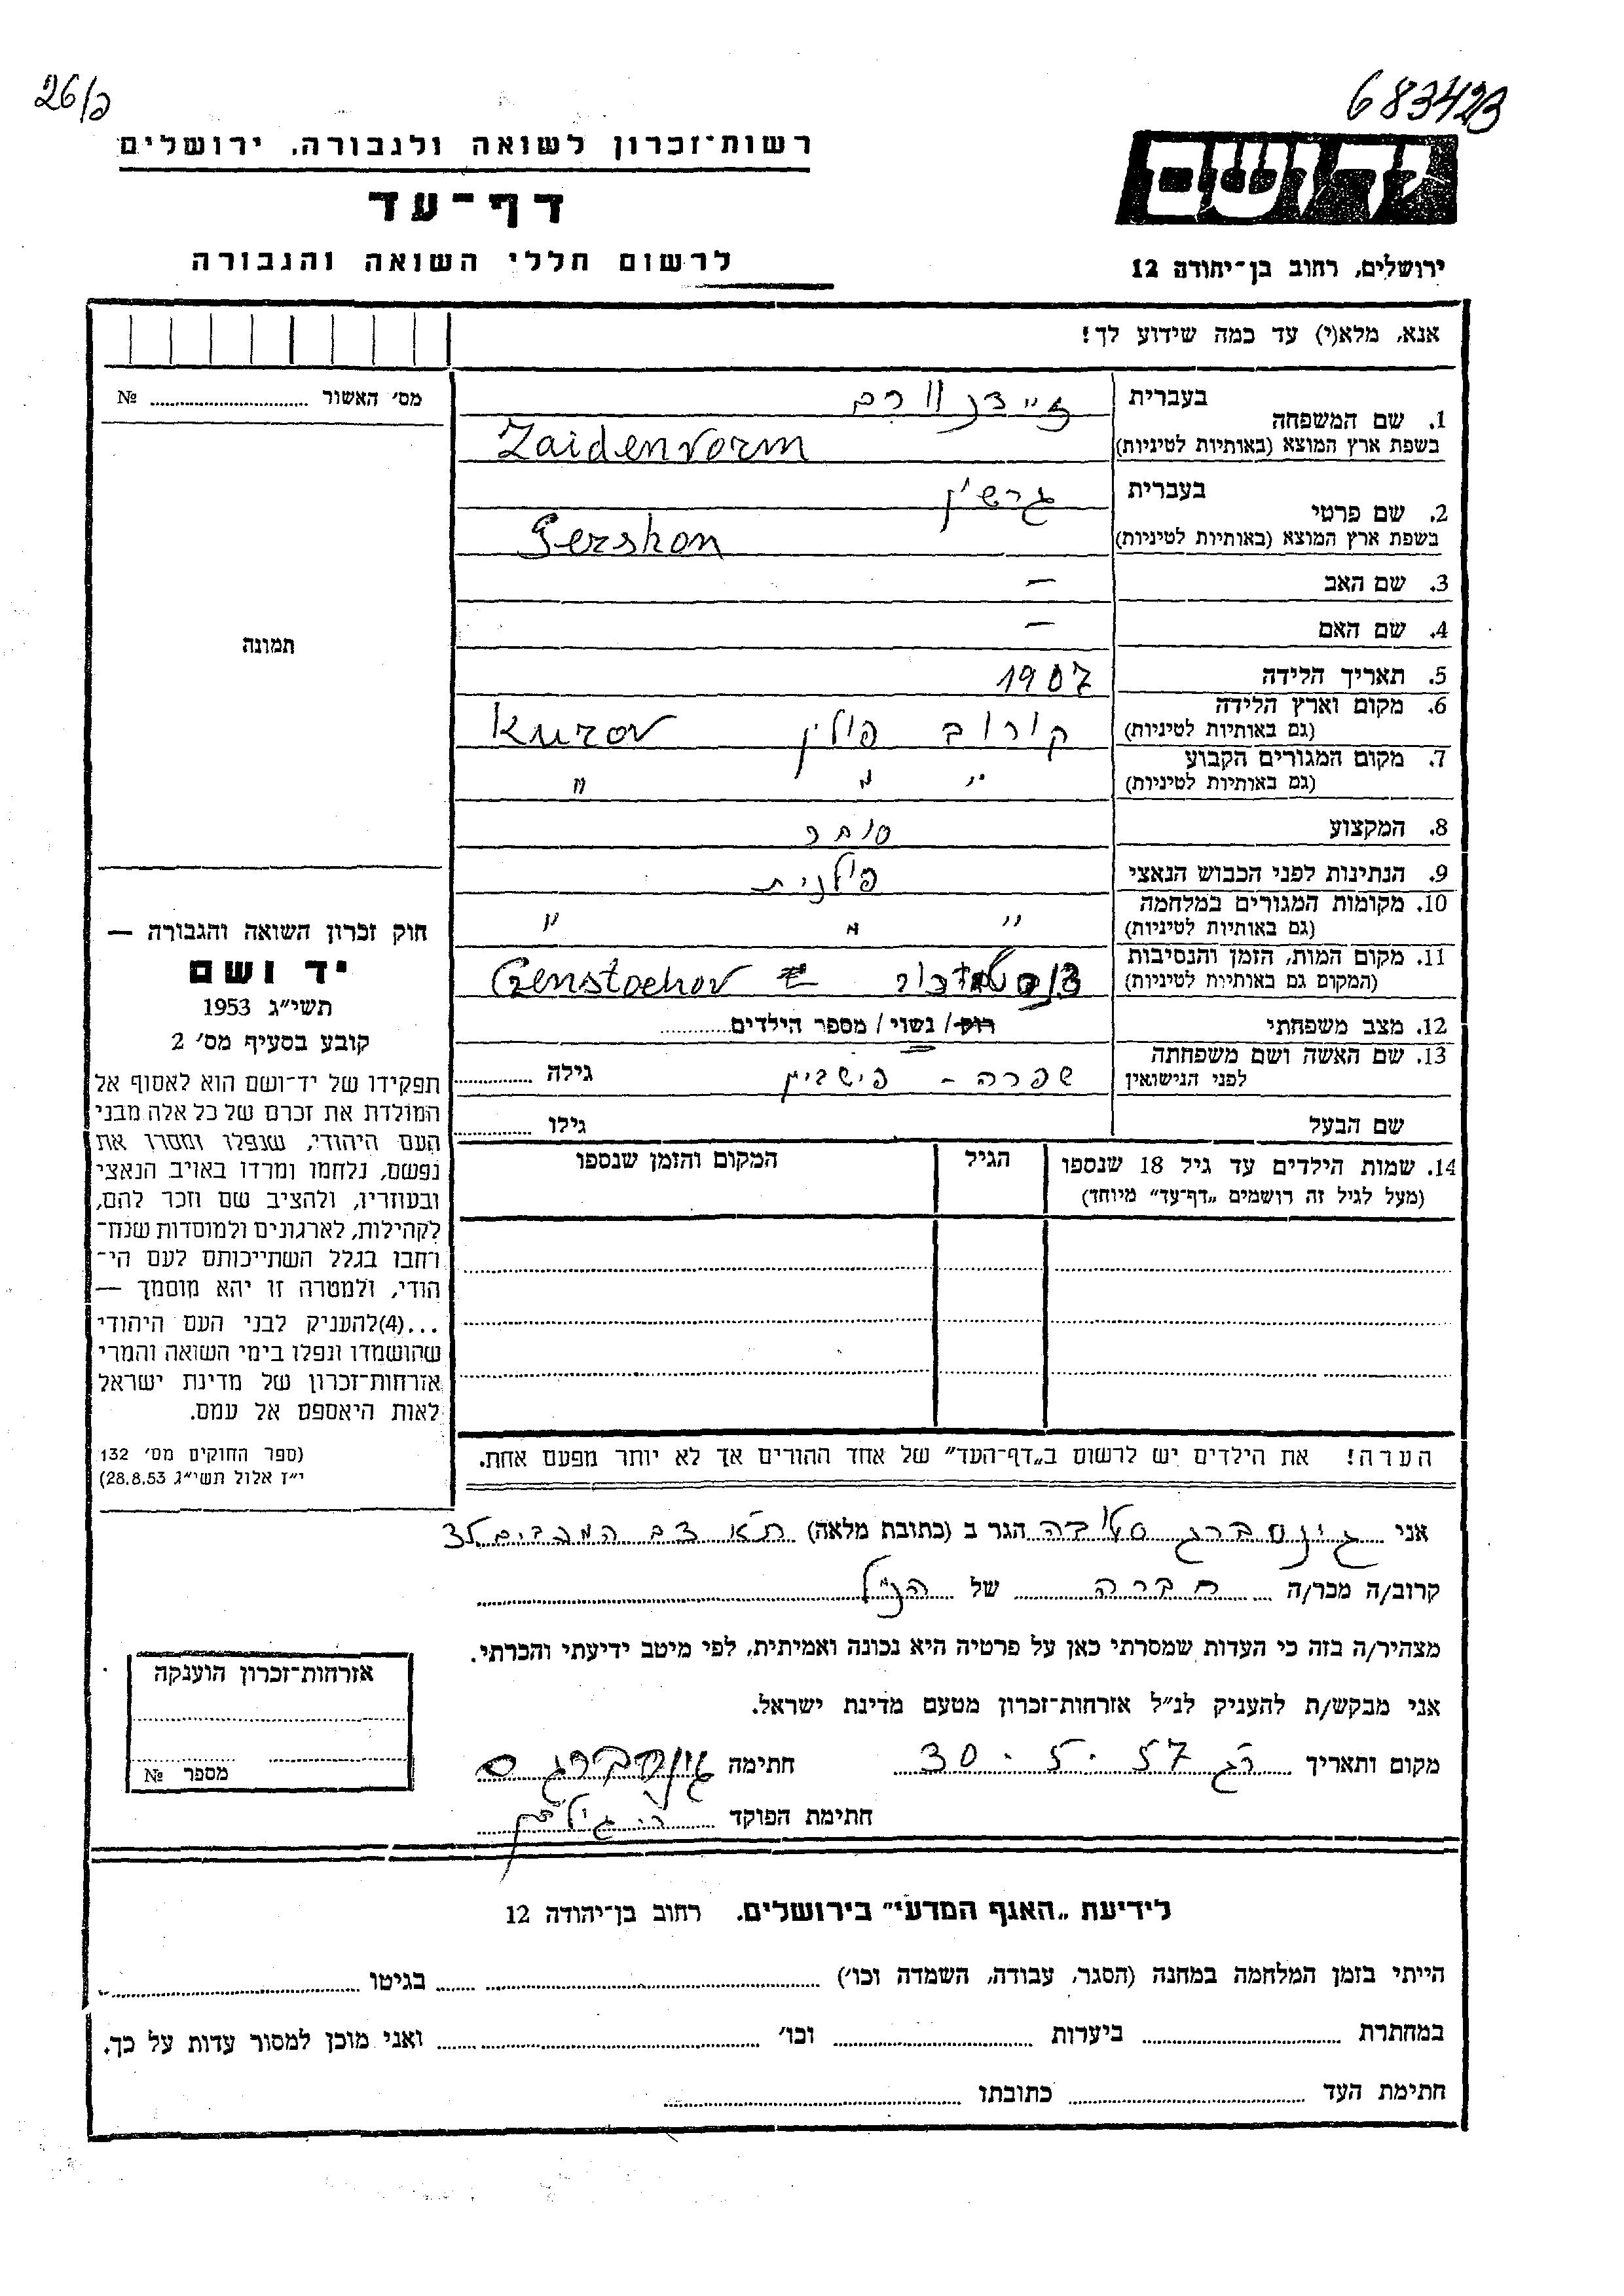 26/כ
683423
רשות־זכרון לשואה ולגבורה, ירושלים
דף־עד
לרשום חללי השואה והגבורה
יד ושם
ירושלים, רחוב בן־יהודה 12
אנא, מלא(י) עד כמה שידוע לך!
מס׳ האשור № 
תמונה
1. שם המשפחה
בעברית זיידנוורם
בשפת ארץ המוצא (באותיות לטיניות) Zaidenvorm
2. שם פרטי
בעברית גרשון
בשפת ארץ המוצא (באותיות לטיניות) Gershon
3. שם האב —
4. שם האם —
5. תאריך הלידה 1907
6. מקום וארץ הלידה
(גם באותיות לטיניות) קורוב פולין Kurov
7. מקום המגורים הקבוע
(גם באותיות לטיניות) " " "
8. המקצוע סוחר
9. הנתינות לפני הכבוש הנאצי פולנית
10. מקומות המגורים במלחמה
(גם באותיות לטיניות) " " "
11. מקום המות, הזמן והנסיבות
(המקום גם באותיות לטיניות) Czenstochov
12. מצב משפחתי רוק / נשוי / מספר הילדים
13. שם האשה ושם משפחתה
לפני הנישואין שפרה - פישביין גילה
שם הבעל גילו
14. שמות הילדים עד גיל 18 שנספו
(מעל לגיל זה רושמים „דף־עד״ מיוחד)
הגיל
המקום והזמן שנספו
הערה! את הילדים יש לרשום ב„דף־העד״ של אחד ההורים אך לא יותר מפעם אחת.
חוק זכרון השואה והגבורה —
יד ושם
תשי״ג 1953
קובע בסעיף מס׳ 2
תפקידו של יד־ושם הוא לאסוף אל
המולדת את זכרם של כל אלה מבני
העם היהודי, שנפלו ומסרו את
נפשם, נלחמו ומרדו באויב הנאצי
ובעוזריו, ולהציב שם וזכר להם,
לקהילות, לארגונים ולמוסדות שנח־
רחבו בגלל השתייכותם לעם הי־
הודי, ולמטרה זו יהא מוסמך —
...(4)להעניק לבני העם היהודי
שהושמדו ונפלו בימי השואה והמרי
אזרחות־זכרון של מדינת ישראל
לאות היאספם אל עמם.
(ספר החוקים מס׳ 132
י״ז אלול תשי״ג 28.8.53)
אני גינסברג הגר ב (כתובת מלאה) ת״א
קרוב/ה מכר/ה חברה של הנ״ל
מצהיר/ה בזה כי העדות שמסרתי כאן על פרטיה היא נכונה ואמיתית, לפי מיטב ידיעתי והכרתי.
אני מבקש/ת להעניק לנ״ל אזרחות־זכרון מטעם מדינת ישראל.
מקום ותאריך רג 30.5.57 חתימה גינסברג ס
חתימת הפוקד
אזרחות־זכרון הוענקה
מספר №
לידיעת „האגף המדעי״ בירושלים. רחוב בן־יהודה 12
הייתי בזמן המלחמה במחנה (הסגר, עבודה, השמדה וכו׳) בגיטו
במחתרת ביערות וכו׳ ואני מוכן למסור עדות על כך.
חתימת העד כתובתו